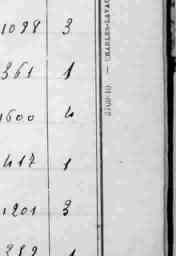 1098 3
361 1
1600 4
417 1
1201 3
1
CHARLES-LAVAU